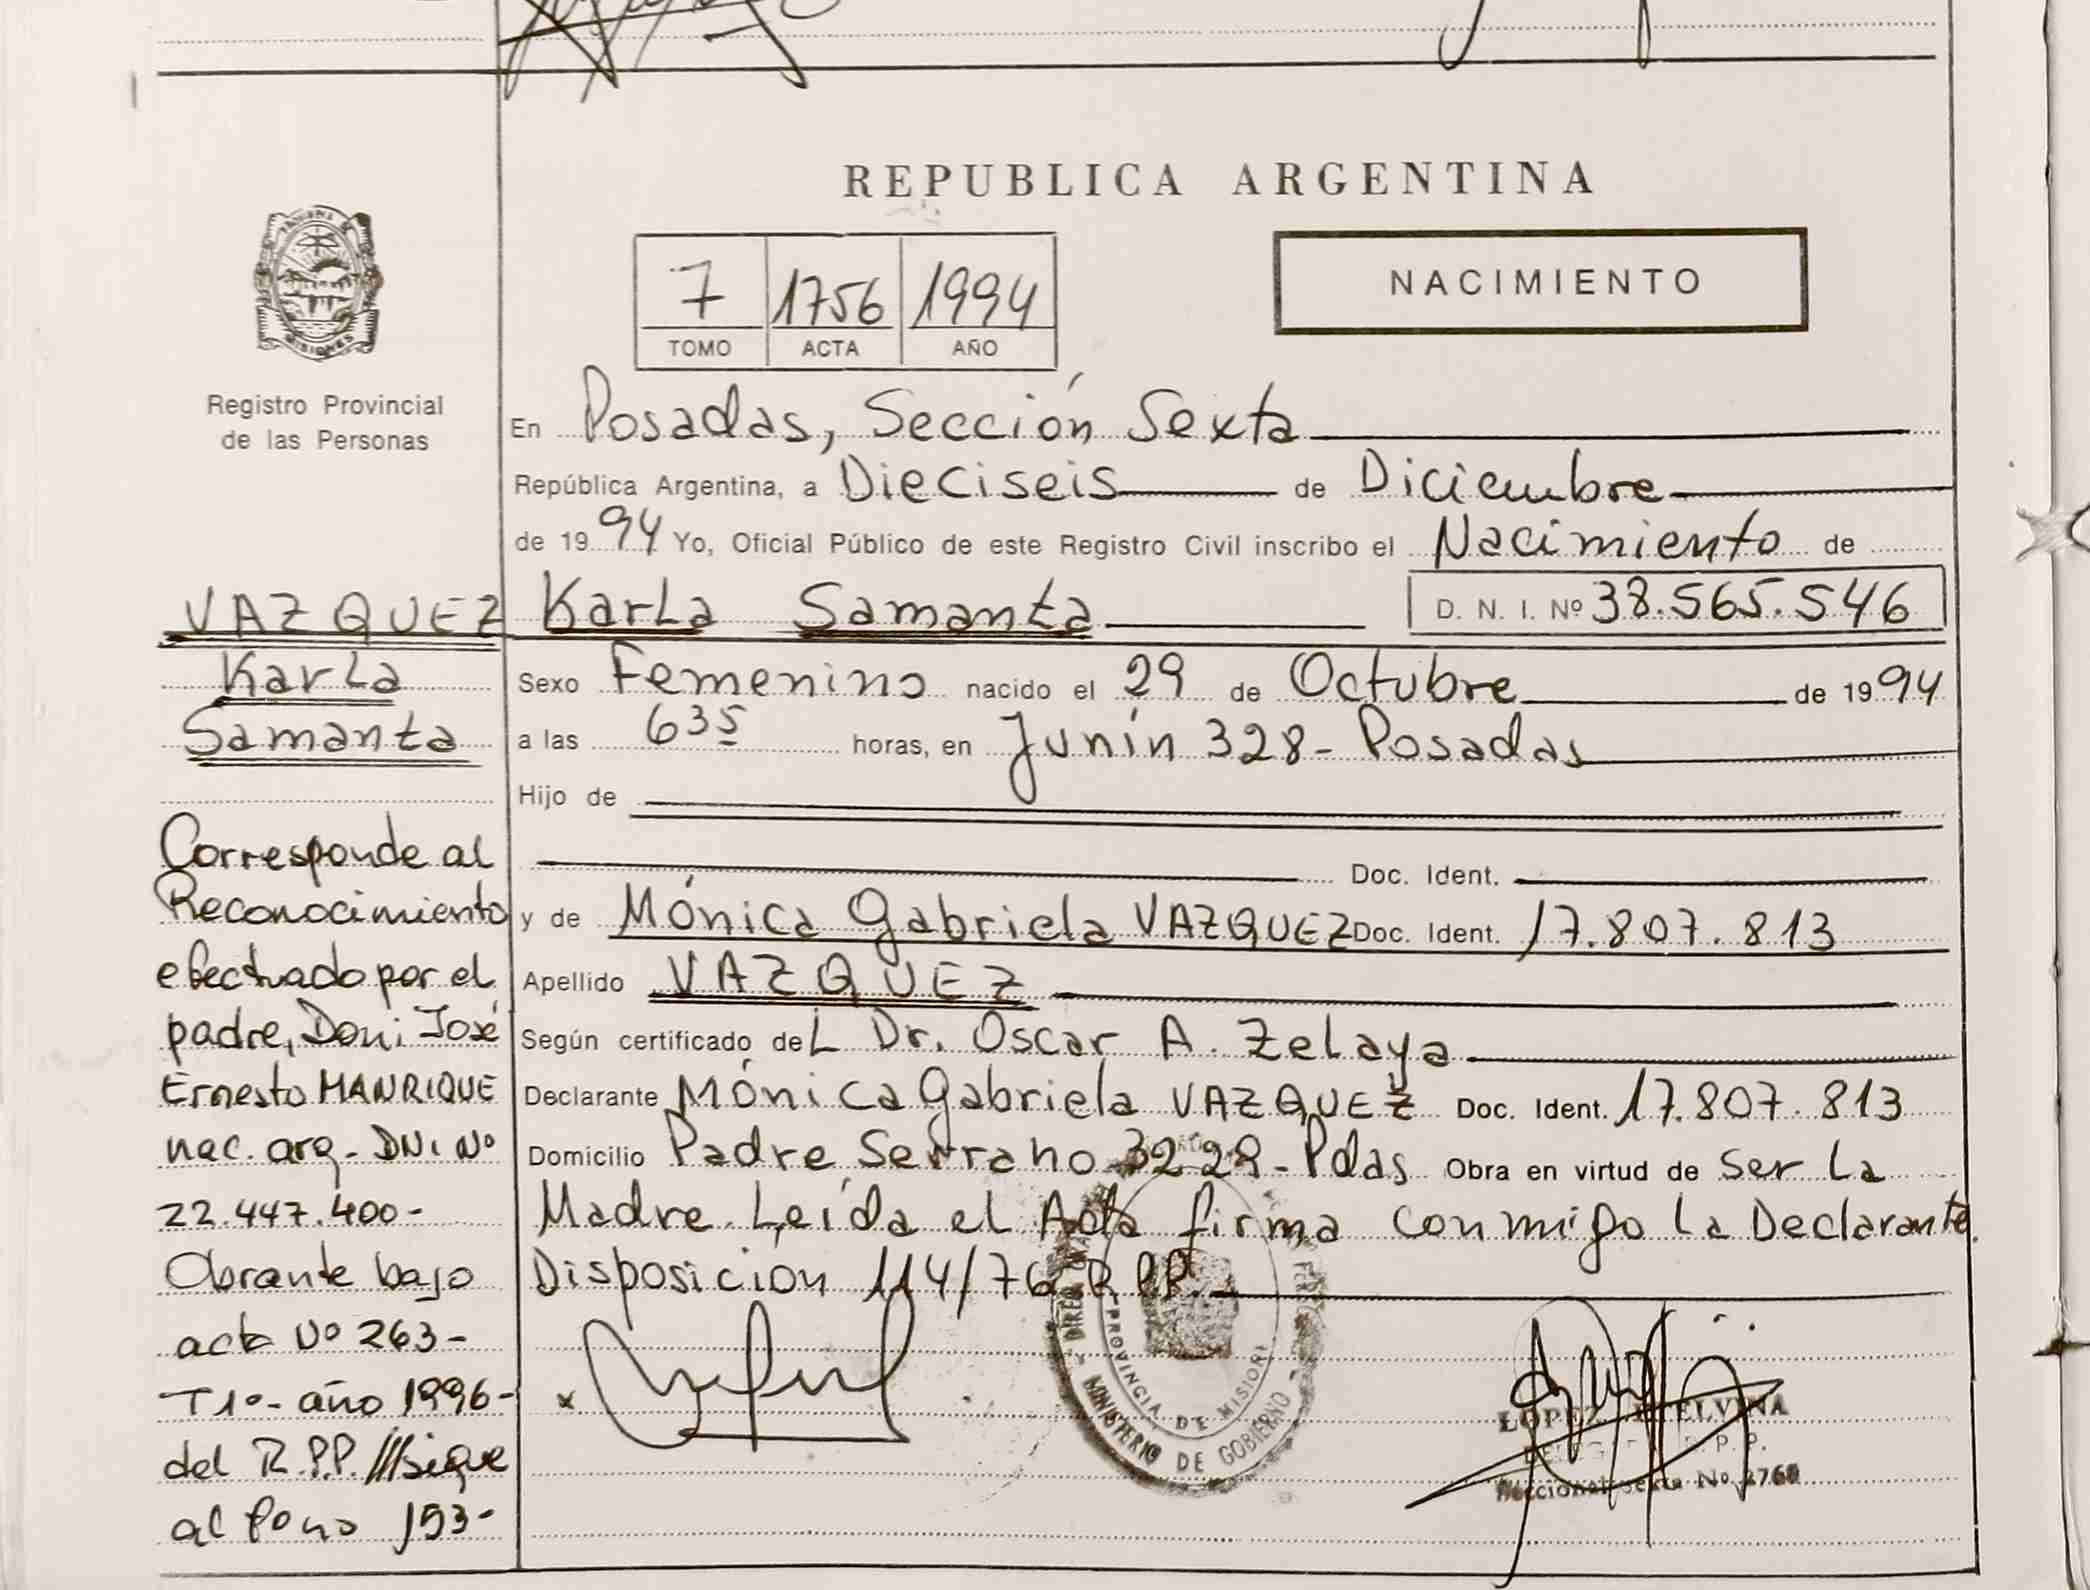 REPUBLICA ARGENTINA
7 1756 1994
TOMO ACTA AÑO
NACIMIENTO
MISIONES
Registro Provincial
de las Personas
En Posadas, Sección Sexta
República Argentina, a Dieciseis de Diciembre
de 1994 Yo, Oficial Público de este Registro Civil inscribo el Nacimiento de
Karla Samanta D. N. I. Nº 38.565.546
Sexo Femenino nacido el 29 de Octubre de 1994
a las 635 horas, en Junín 328- Posadas
Hijo de
Doc. Ident.
y de Mónica Gabriela VAZQUEZ Doc. Ident. 17.807.813
Apellido VAZQUEZ
Según certificado del Dr. Oscar A. Zelaya
Declarante Mónica Gabriela VAZQUEZ Doc. Ident. 17.807.813
Domicilio Padre Serrano 3229- Pdas Obra en virtud de Ser La
Madre. Leída el Acta firma conmigo La Declarante.
Disposición 114/76 R.P.P.
VAZQUEZ
Karla
Samanta
Corresponde al
Reconocimiento
efectuado por el
padre, Don: José
Ernesto MANRIQUE
nac. arg- DNI Nº
22.447.400-
Obrante bajo
acta Nº 263-
T1º- año 1996-
del R.P.P. ///sigue
al fono 153-
PROVINCIA DE MISIONES
MINISTERIO DE GOBIERNO
LOPEZ ETELVINA
R. P. P.
Seccional Sexta Nº 2760